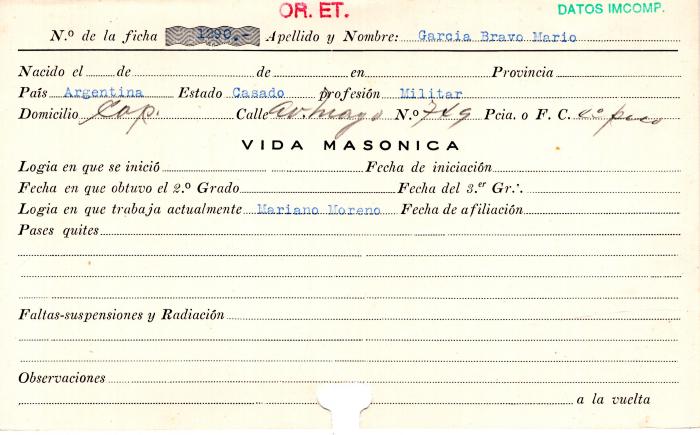 OR. ET.
DATOS IMCOMP.
N.º de la ficha 1290.- Apellido y Nombre: Garcia Bravo Mario
Nacido el de de en Provincia
País Argentina Estado Casado Profesión Militar
Domicilio Cap. Calle Av. Mayo N.º 749 Pcia. o F. C. 4º piso
VIDA MASONICA
Logia en que se inició Fecha de iniciación
Fecha en que obtuvo el 2.º Grado Fecha del 3.er Gr∴
Logia en que trabaja actualmente Mariano Moreno Fecha de afiliación
Pases quites
Faltas-suspensiones y Radiación
Observaciones
a la vuelta